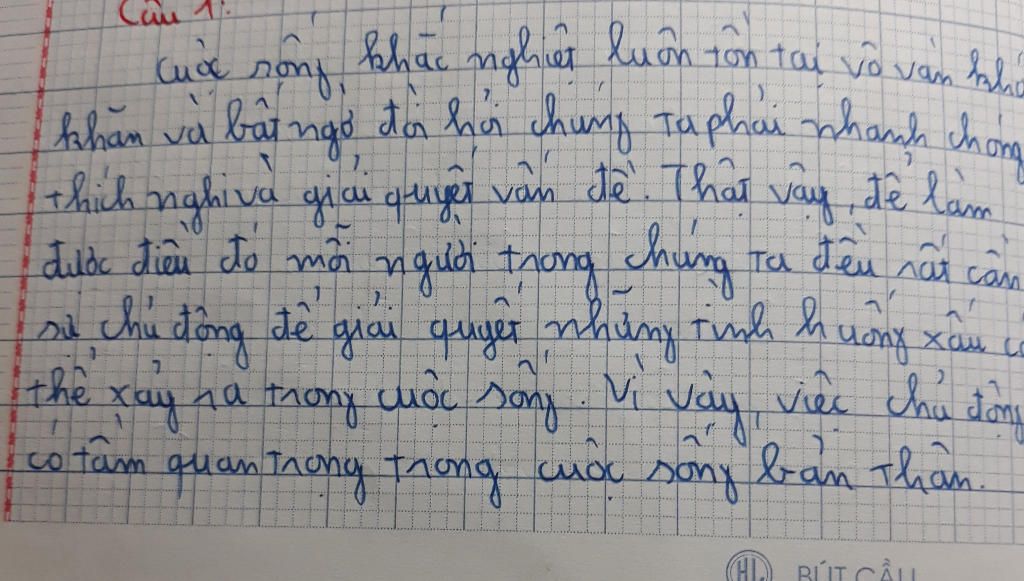 Câu 1:
Cuộc sống khắc nghiệt luôn tồn tại vô vàn khó
khăn và bất ngờ đòi hỏi chúng ta phải nhanh chóng
thích nghi và giải quyết vấn đề. Thật vậy, để làm
được điều đó mỗi người trong chúng ta đều rất cần
sự chủ động để giải quyết những tình huống xấu có
thể xảy ra trong cuộc sống. Vì vậy, việc chủ động
có tầm quan trọng trong cuộc sống bản thân.
HL BÚT CẦU